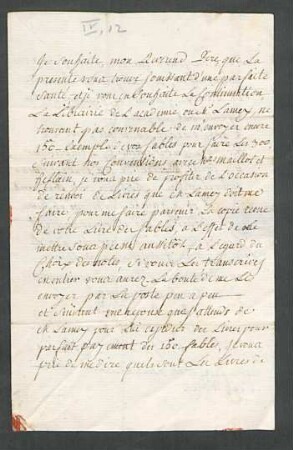 IV, 12
Je Souhaite, mon Reverend Pere, que La
presente vous trouve jouissant d'une parfaite
santé, et je vous en souhaite La Continuation
La Librairie de L'academie ou Mr Lamey, ne
trouvant pas convenable de m'envoyer encore
150 Exempl. de vos fables pour faire les 300,
suivant nos Conventions avec Mr maillot et
Desbain, je vous prie de profiter de L'occasion
de renvoi de Livres que Mr Lamey doit me
faire, pour me faire parvenir La copie tierce
de votre Livre des fables, a L'effet de Le
mettre Sous presse aussitot, a L'egard du
Choix des notes, si vous Les transcrivez
en entier vous aurez La bonté de me Les
envoyer par La poste peu a peu
et suivant une reponse que j'attends de
Mr Lamey pour La des Livres pour
parfait payement des 150 fables, je vous
prie de me dire quels sont Les Livres de